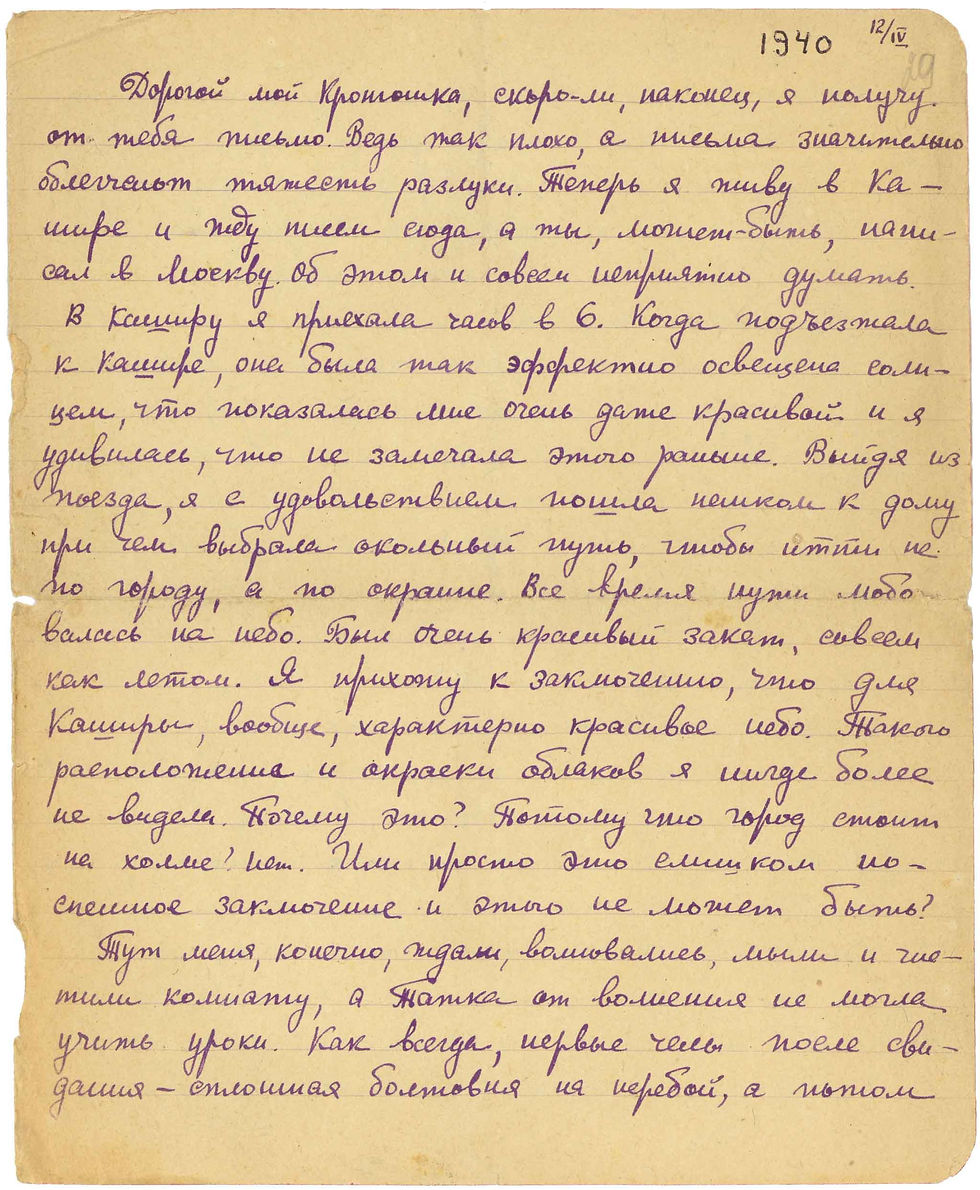 1940 12/IV
19
Дорогой мой Кротошка, скоро-ли, наконец, я получу
от тебя письмо. Ведь так плохо, а письма значительно
облегчают тяжесть разлуки. Теперь я живу в Ка-
шире и жду писем сюда, а ты, может-быть, напи-
сал в Москву. Об этом и совсем неприятно думать.
В Каширу я приехала часов в 6. Когда подъезжала
к Кашире, она была так эффектно освещена солн-
цем, что показалась мне очень даже красивой и я
удивилась, что не замечала этого раньше. Выйдя из
поезда, я с удовольствием пошла пешком к дому
при чем выбрала окольный путь, чтобы итти не
по городу, а по окраине. Все время пути любо
валась на небо. Был очень красивый закат, совсем
как летом. Я прихожу к заключению, что для
Каширы, вообще, характерно красивое небо. Такого
расположения и окраски облаков я нигде более
не видела. Почему это? Потому что город стоит
на холме? Нет. Или просто это слишком по-
спешное заключение и этого не может быть?
Тут меня, конечно, ждали, волновались, мыли и чис-
тили комнату, а Татка от волнения не могла
учить уроки. Как всегда, первые часы после сви-
дания – сплошная болтовня на перебой, а потом